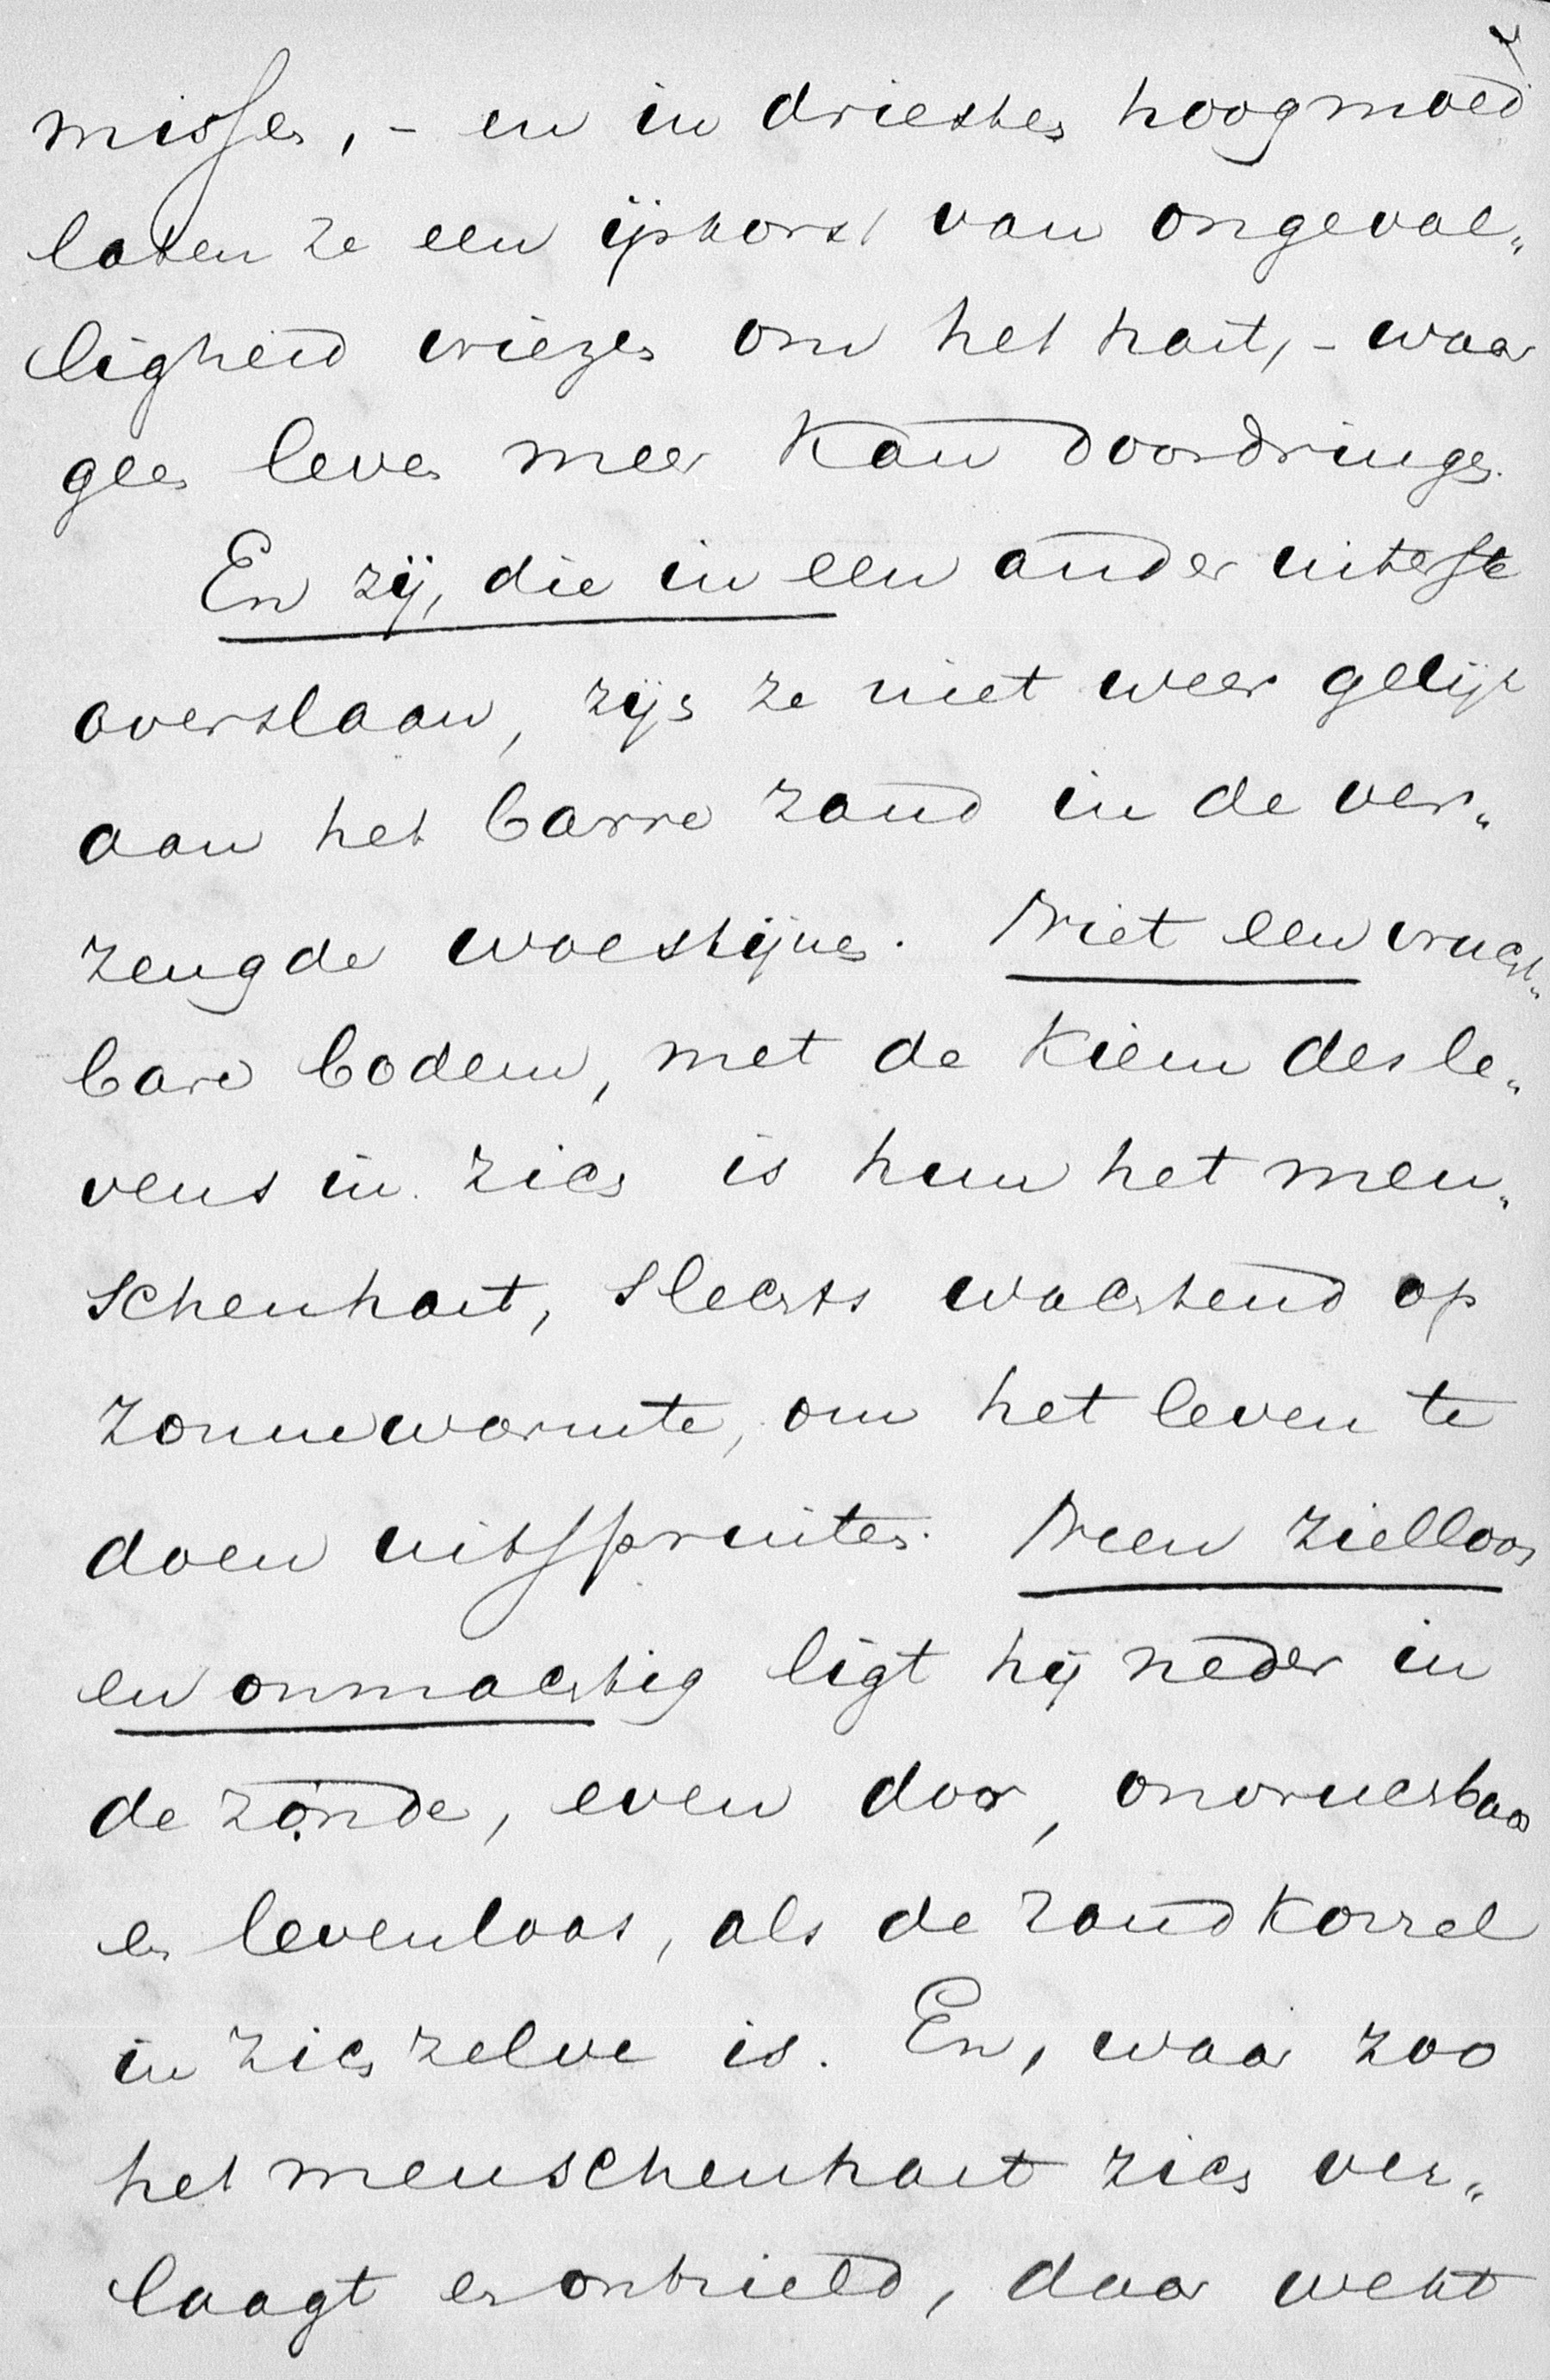 missen, - en in drieste hoogmoed
laten ze een ijskorst van ongeval„
ligheid vriezen om het hart, - waar
geen leven meer kan doordringen.
En zij, die in een ander uiterste
overslaan, zijn ze niet weer gelijk
aan het barre zand in de ver„
zengde woestijnen. Niet een vrucht„
bare bodem, met de kiem des le„
vens in zich is hun het men„
schenhart, slechts wachtend op
zonnewarmte, om het leven te
doen uitspruiten. Neen zielloos
en onmachtig ligt hij neder in
de zonde, even dor, onvruchtbaar
en levenloos, als de zandkorrel
in zich zelve is. En, waar zoo
het menschenhart zich ver„
laagt en ontzield, daar wekt